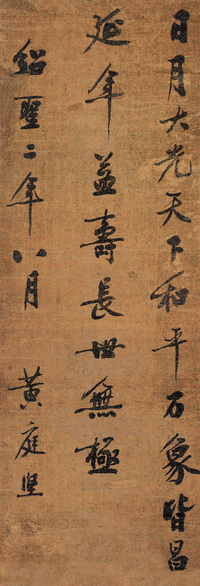 日月大光天下和平万象皆昌
延年益壽長世無極
紹聖二年八月 黃庭堅